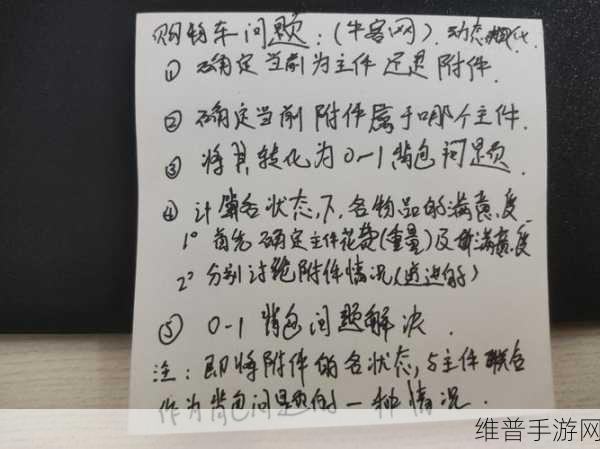 购物车问题：(牛客网). 动态规化.
① 确定当前为主件还是附件.
② 确定当前附件属于哪个主件.
③ 将其转化为0-1背包问题.
④ 计算各状态下,各物品的满意度.
1° 首先确定主件花费(重量)及其满意度
2° 分别讨论附件情况(递进的)
⑤ 0-1背包问题解决.
注：即将附件的各状态,与主件联合
作为背包问题的一种情况.
维普手游网